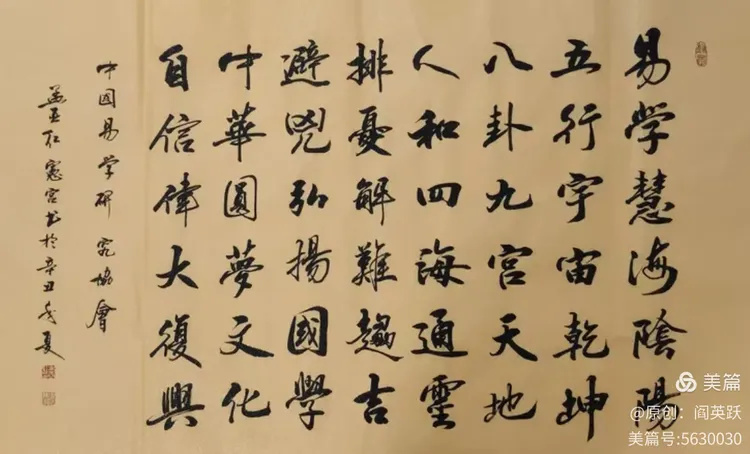 易學慧海陰陽
五行宇宙乾坤
八卦九宮天地
人和四海通靈
排憂解難趨吉
避兇弘揚國學
中華圓夢文化
自信偉大復興
中国易学研究協會
书於辛丑夏
美篇
@原创：阎英跃
美篇号:5630030